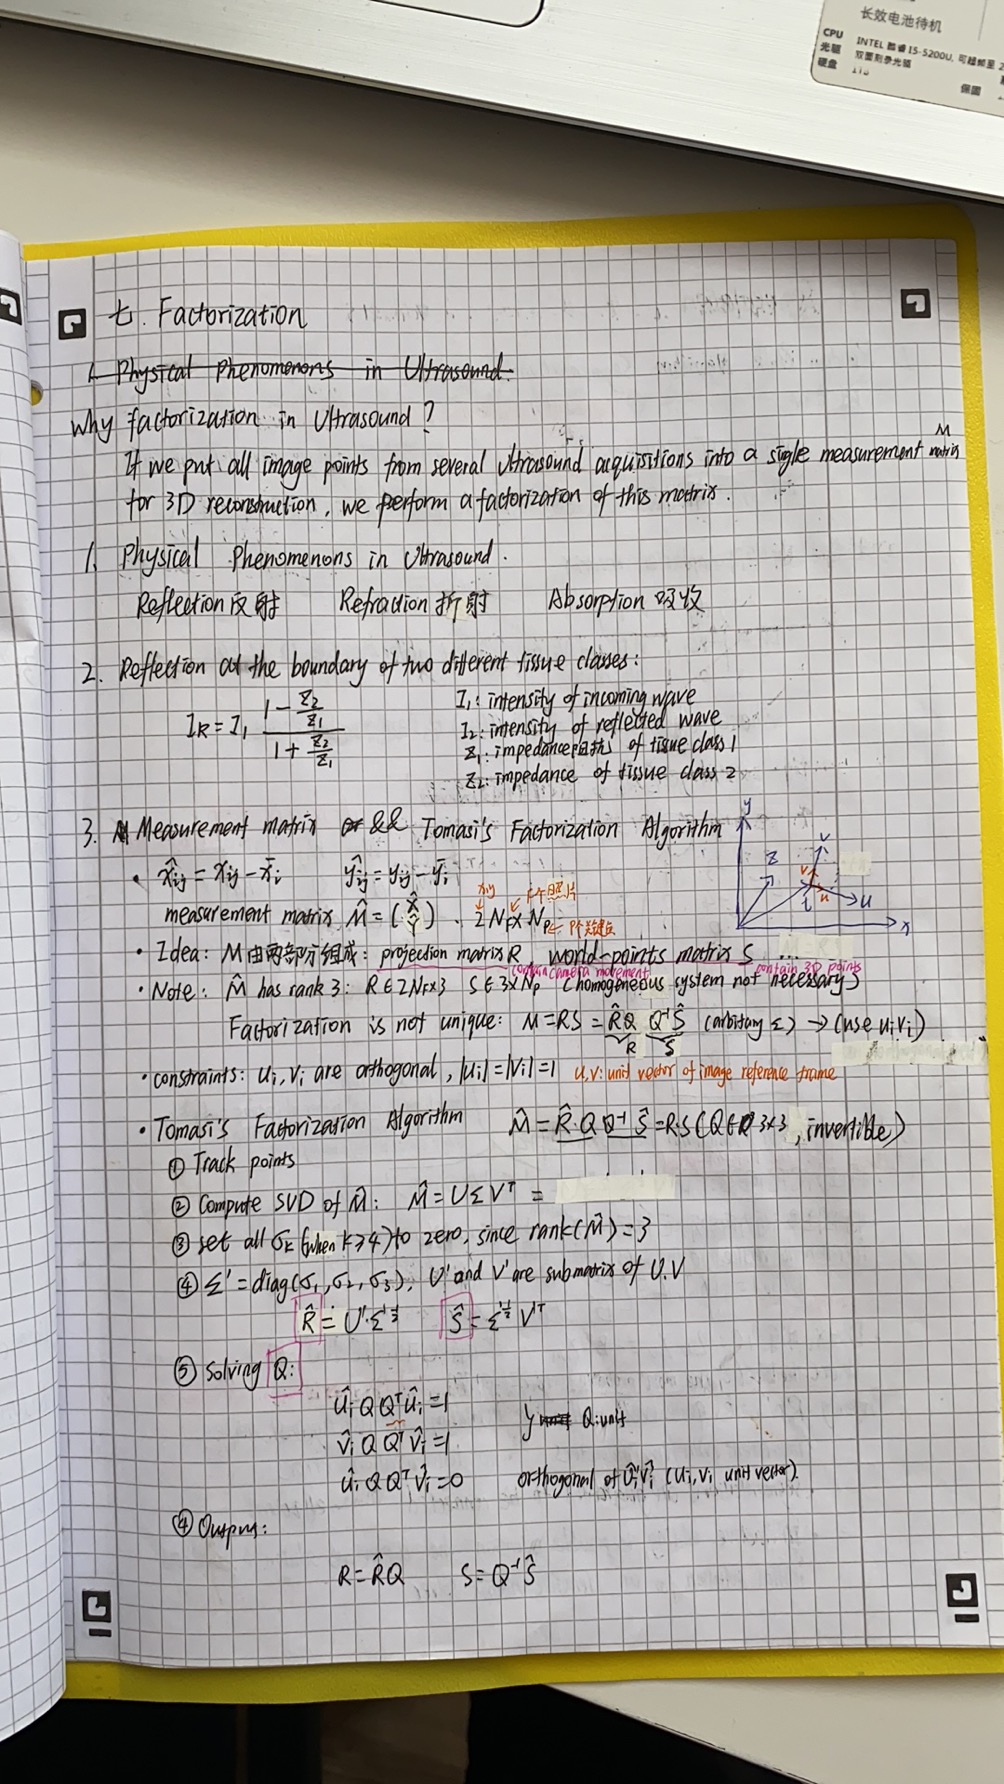 长效电池待机
CPU INTEL 酷睿 I5-5200U, 可超频至 2
光驱 双面刻录光驱
硬盘
保固
七. Factorization
1. Physical Phenomenons in Ultrasound.
Why factorization in Ultrasound?
If we put all image points from several ultrasound acquisitions into a single measurement matrix M
for 3D reconstruction, we perform a factorization of this matrix.
1. Physical Phenomenons in Ultrasound.
Reflection 反射 Refraction 折射 Absorption 吸收
2. Reflection at the boundary of two different tissue classes:
I_R = I_1 (1 - Z_2/Z_1) / (1 + Z_2/Z_1)
I_1: intensity of incoming wave
I_2: intensity of reflected wave
Z_1: impedance 阻抗 of tissue class 1
Z_2: impedance of tissue class 2
3. Measurement matrix or && Tomasi's Factorization Algorithm
y z v u x
v u i
• x̂_ij = x_ij - x̄_i ŷ_ij = y_ij - ȳ_i
measurement matrix M̂ = (X̂ Ŷ) · 2N_F × N_P
x,y F个照片 P个关键点
• Idea: M由两部分组成: projection matrix R, world-points matrix S ...
contain camera movement contain 3D points
• Note: M̂ has rank 3: R ∈ 2N_F×3 S ∈ 3×N_P (homogeneous system not necessary)
Factorization is not unique: M = RS = R̂Q Q⁻¹Ŝ (arbitary Σ) → (use u_i v_i)
R S
• constraints: u_i, v_i are orthogonal, |u_i| = |v_i| = 1 u,v: unit vector of image reference frame
• Tomasi's Factorization Algorithm M̂ = R̂·Q Q⁻¹ Ŝ = R·S (Q∈R 3×3, invertible)
① Track points
② Compute SVD of M̂: M̂ = UΣV^T =
③ set all σ_k (when k≥4) to zero, since rank(M̂) = 3
④ Σ' = diag(σ_1, σ_2, σ_3), U' and V' are submatrix of U.V
R̂ = U'·Σ'^½ Ŝ = Σ'^½ V'^T
⑤ Solving Q:
û_i Q Q^T û_i = 1
v̂_i Q Q^T v̂_i = 1
} Q: unit
û_i Q Q^T v̂_i = 0 orthogonal of û_i v̂_i (u_i, v_i unit vector).
④ Output:
R = R̂Q S = Q⁻¹Ŝ